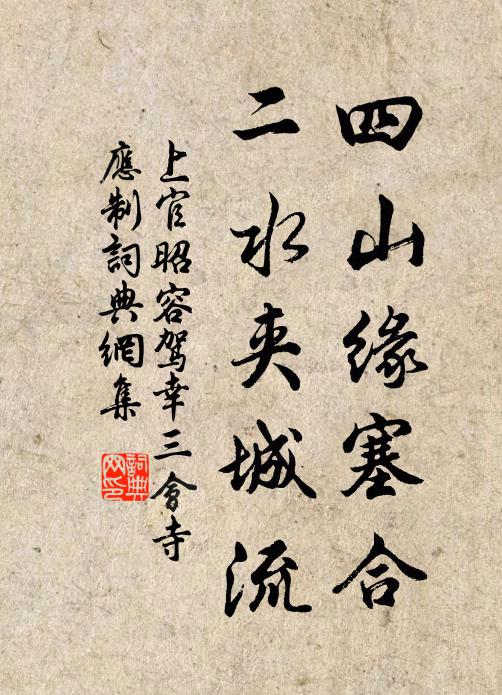 四山緣塞合
二水夾城流
上官昭容駕幸三會寺
應制詞典網集
詞典網印